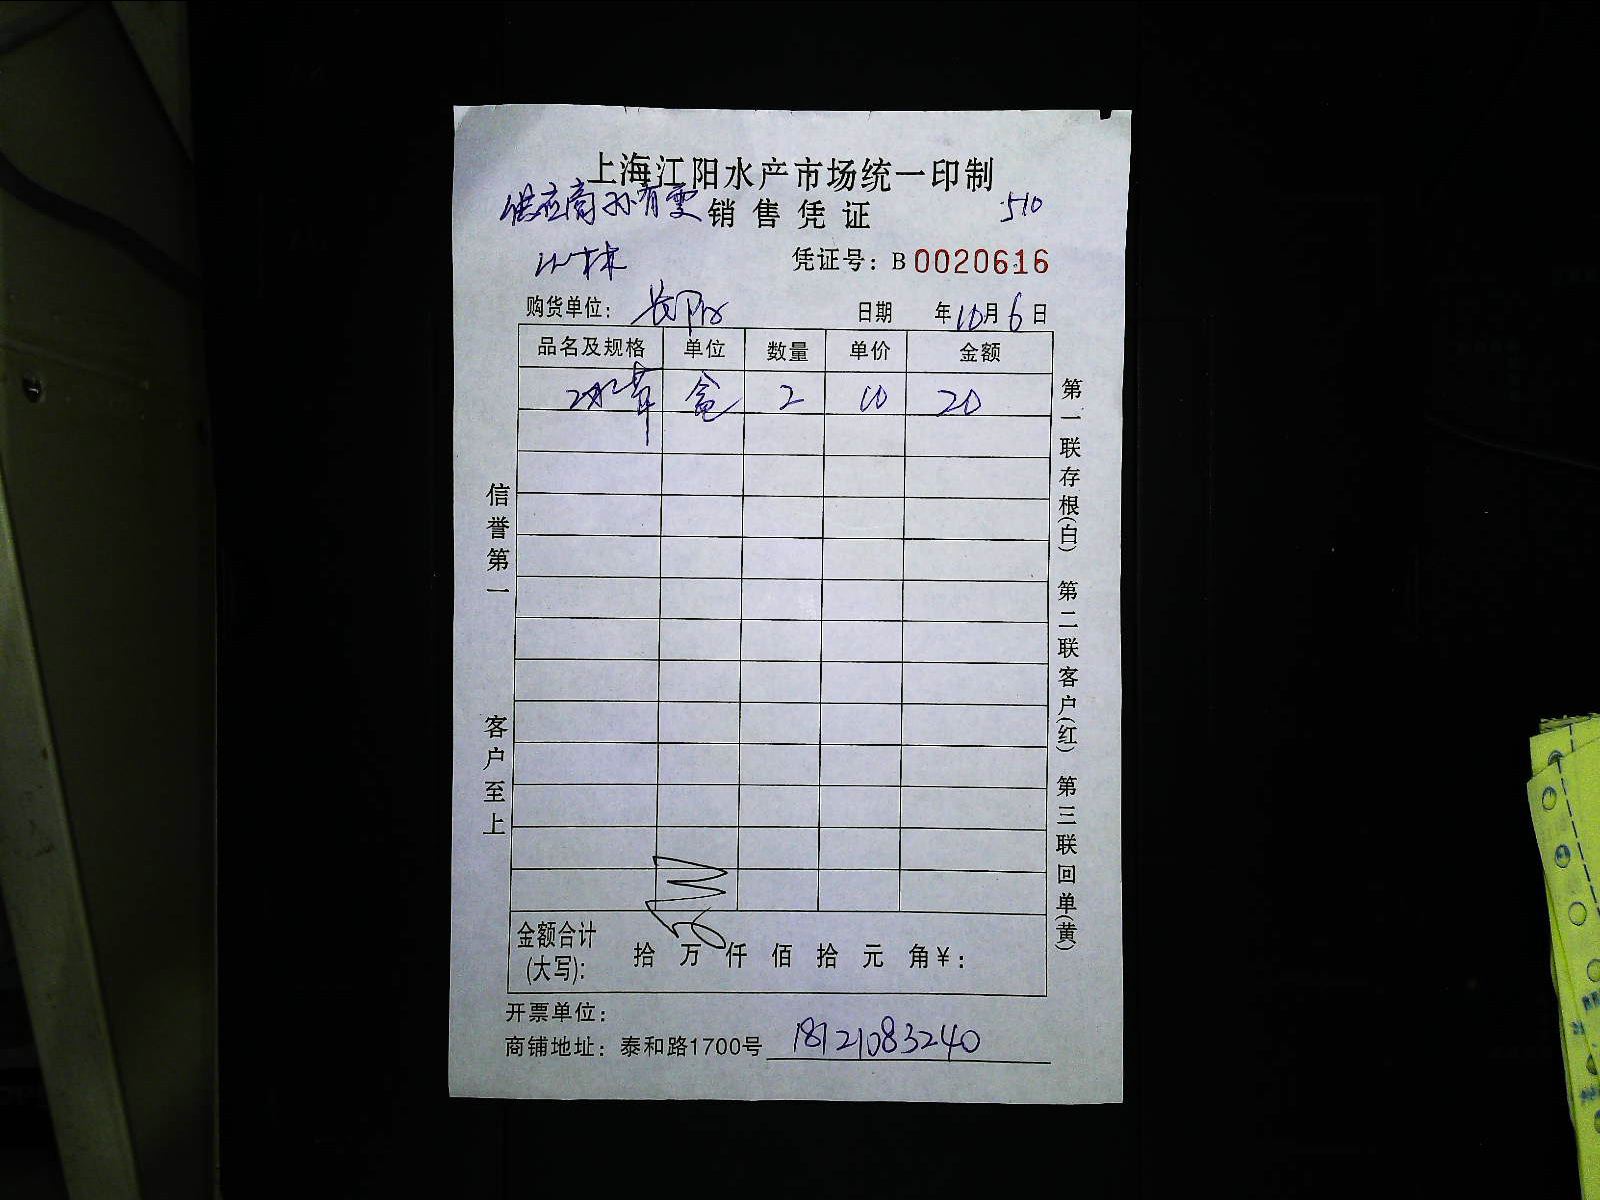 上海江阳水产市场统一印制
供应商孙有雯 销售凭证 510
小林 凭证号：B 0020616
购货单位： 长阳 日期 年10月6日
品名及规格 单位 数量 单价 金额
盒 2 10 20
信誉第一 客户至上
第一联存根(白) 第二联客户(红) 第三联回单(黄)
金额合计(大写)： 拾 万 仟 佰 拾 元 角￥：
开票单位：
商铺地址：泰和路1700号 18121083240